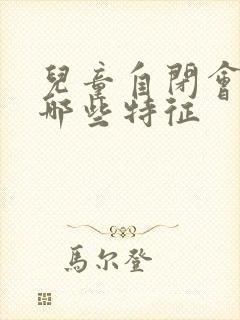 兒童自閉會
哪些特征
馬尔登